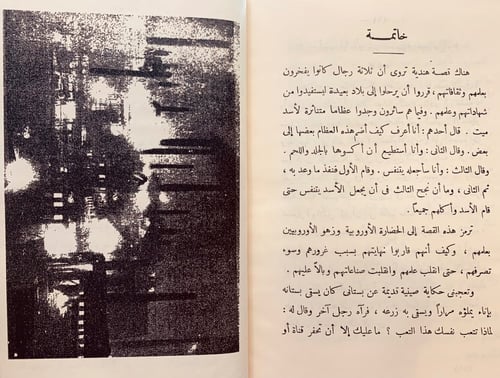 خاتمة
هناك قصة هندية تروى أن ثلاثة رجال كانوا يفخرون
بعلمهم وثقافاتهم ، قرروا أن يرحلوا إلى بلاد بعيدة ليستفيدوا من
شهاداتهم وعلمهم . وفيما هم سائرون وجدوا عظاما متناثرة لأسد
ميت . قال أحدهم : أنا أعرف كيف أضم هذه العظام بعضها إلى
بعض . وقال الثانى : وأنا أستطيع أن أكسوها بالجلد واللحم .
وقال الثالث : وأنا سأجعله يتنفس . وقام الأول فنفذ ما وعد به ،
ثم الثانى ، وما أن نجح الثالث فى أن يجعل الأسد يتنفس حتى
قام الأسد وأكلهم جميعًا .
ترمز هذه القصة إلى الحضارة الأوروبية وزهو الأوروبيين
بعلمهم ، وكيف أنهم قاربوا نهايتهم بسبب غرورهم وسوء
تصرفهم ، حتى انقلب علمهم وانقلبت صناعاتهم وبالاً عليهم .
وتعجبنى حكاية صينية قديمة عن بستانى كان يسقى بستانه
بإناء يملؤه مرارًا ويسقى به زرعه ، فرآه رجل آخر وقال له :
لماذا تتعب نفسك هذا التعب ؟ ما عليك إلا أن تحفر قناة أو